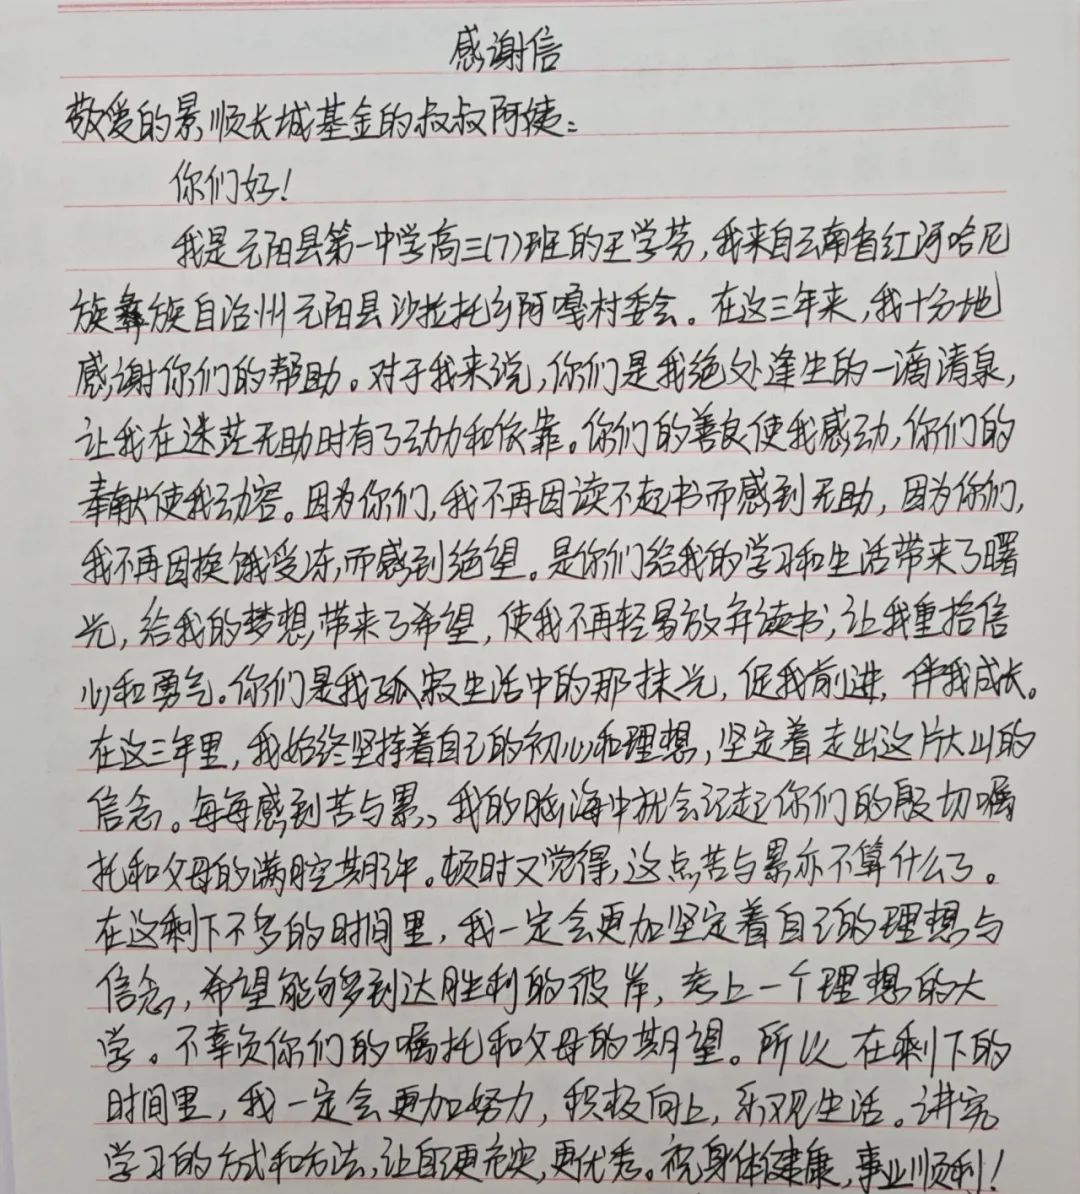 感谢信
敬爱的景顺长城基金的叔叔阿姨：
你们好！
我是元阳县第一中学高三(7)班的王学芳，我来自云南省红河哈尼
族彝族自治州元阳县沙拉托乡阿嘎村委会。在这三年来，我十分地
感谢你们的帮助。对于我来说，你们是我绝处逢生的一滴清泉，
让我在迷茫无助时有了动力和依靠。你们的善良使我感动，你们的
奉献使我动容。因为你们，我不再因读不起书而感到无助，因为你们，
我不再因挨饿受冻而感到绝望。是你们给我的学习和生活带来了曙
光，给我的梦想带来了希望，使我不再轻易放弃读书，让我重拾信
心和勇气。你们是我孤寂生活中的那抹光，促我前进，伴我成长。
在这三年里，我始终坚持着自己的初心和理想，坚定着走出这片大山的
信念。每每感到苦与累，我的脑海中就会记起你们的殷切嘱
托和父母的满腔期许。顿时又觉得，这点苦与累亦不算什么了。
在这剩下不多的时间里，我一定会更加坚定着自己的理想与
信念，希望能够到达胜利的彼岸，考上一个理想的大
学。不辜负你们的嘱托和父母的期望。所以在剩下的
时间里，我一定会更加努力，积极向上，乐观生活。讲究
学习的方式和方法，让自己更充实，更优秀。祝身体健康，事业顺利！